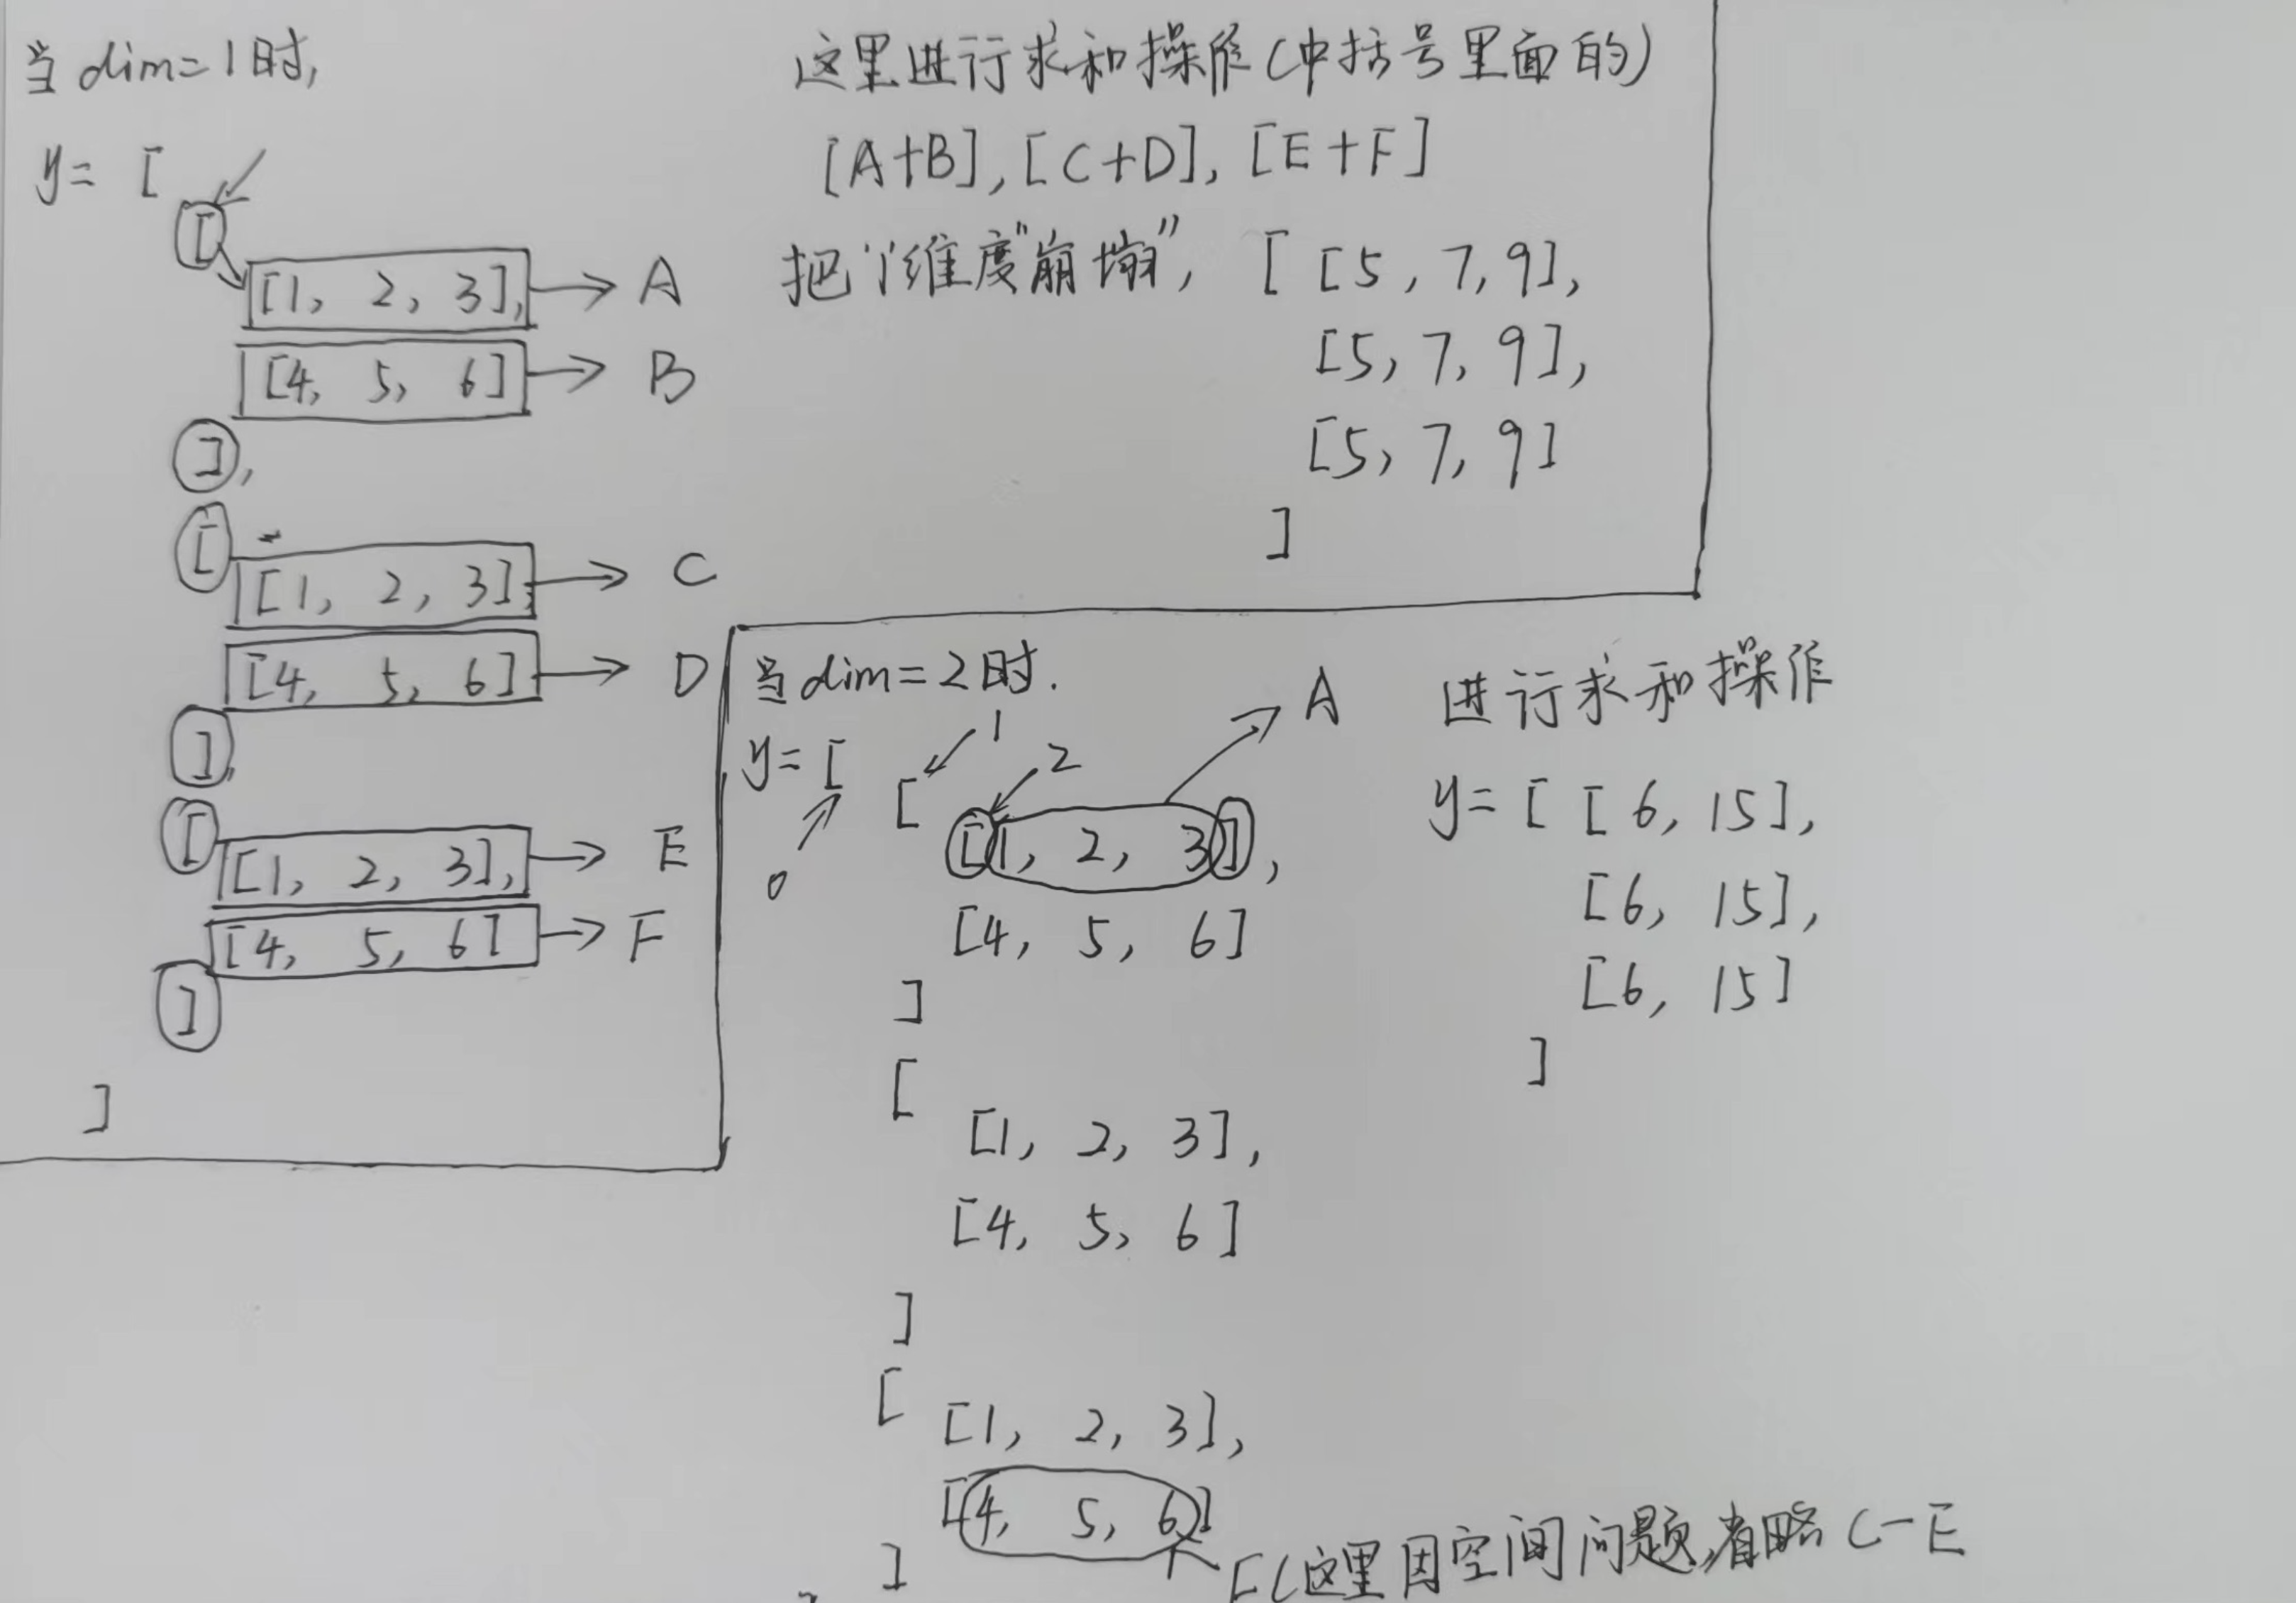 当dim=1时,
y= [
[
[1, 2, 3], → A
[4, 5, 6] → B
],
[
[1, 2, 3], → C
[4, 5, 6] → D
],
[
[1, 2, 3], → E
[4, 5, 6] → F
]
]
这里进行求和操作(中括号里面的)
[A+B],[C+D],[E+F]
把"1"维度"崩塌", [ [5, 7, 9],
[5, 7, 9],
[5, 7, 9]
]
当dim=2时.
y= [
0
[ 1
2
[1, 2, 3], A
[4, 5, 6]
]
[
[1, 2, 3],
[4, 5, 6]
]
[
[1, 2, 3],
[4, 5, 6]
]
F(这里因空间问题,省略C-E
进行求和操作
y= [ [6, 15],
[6, 15],
[6, 15]
]